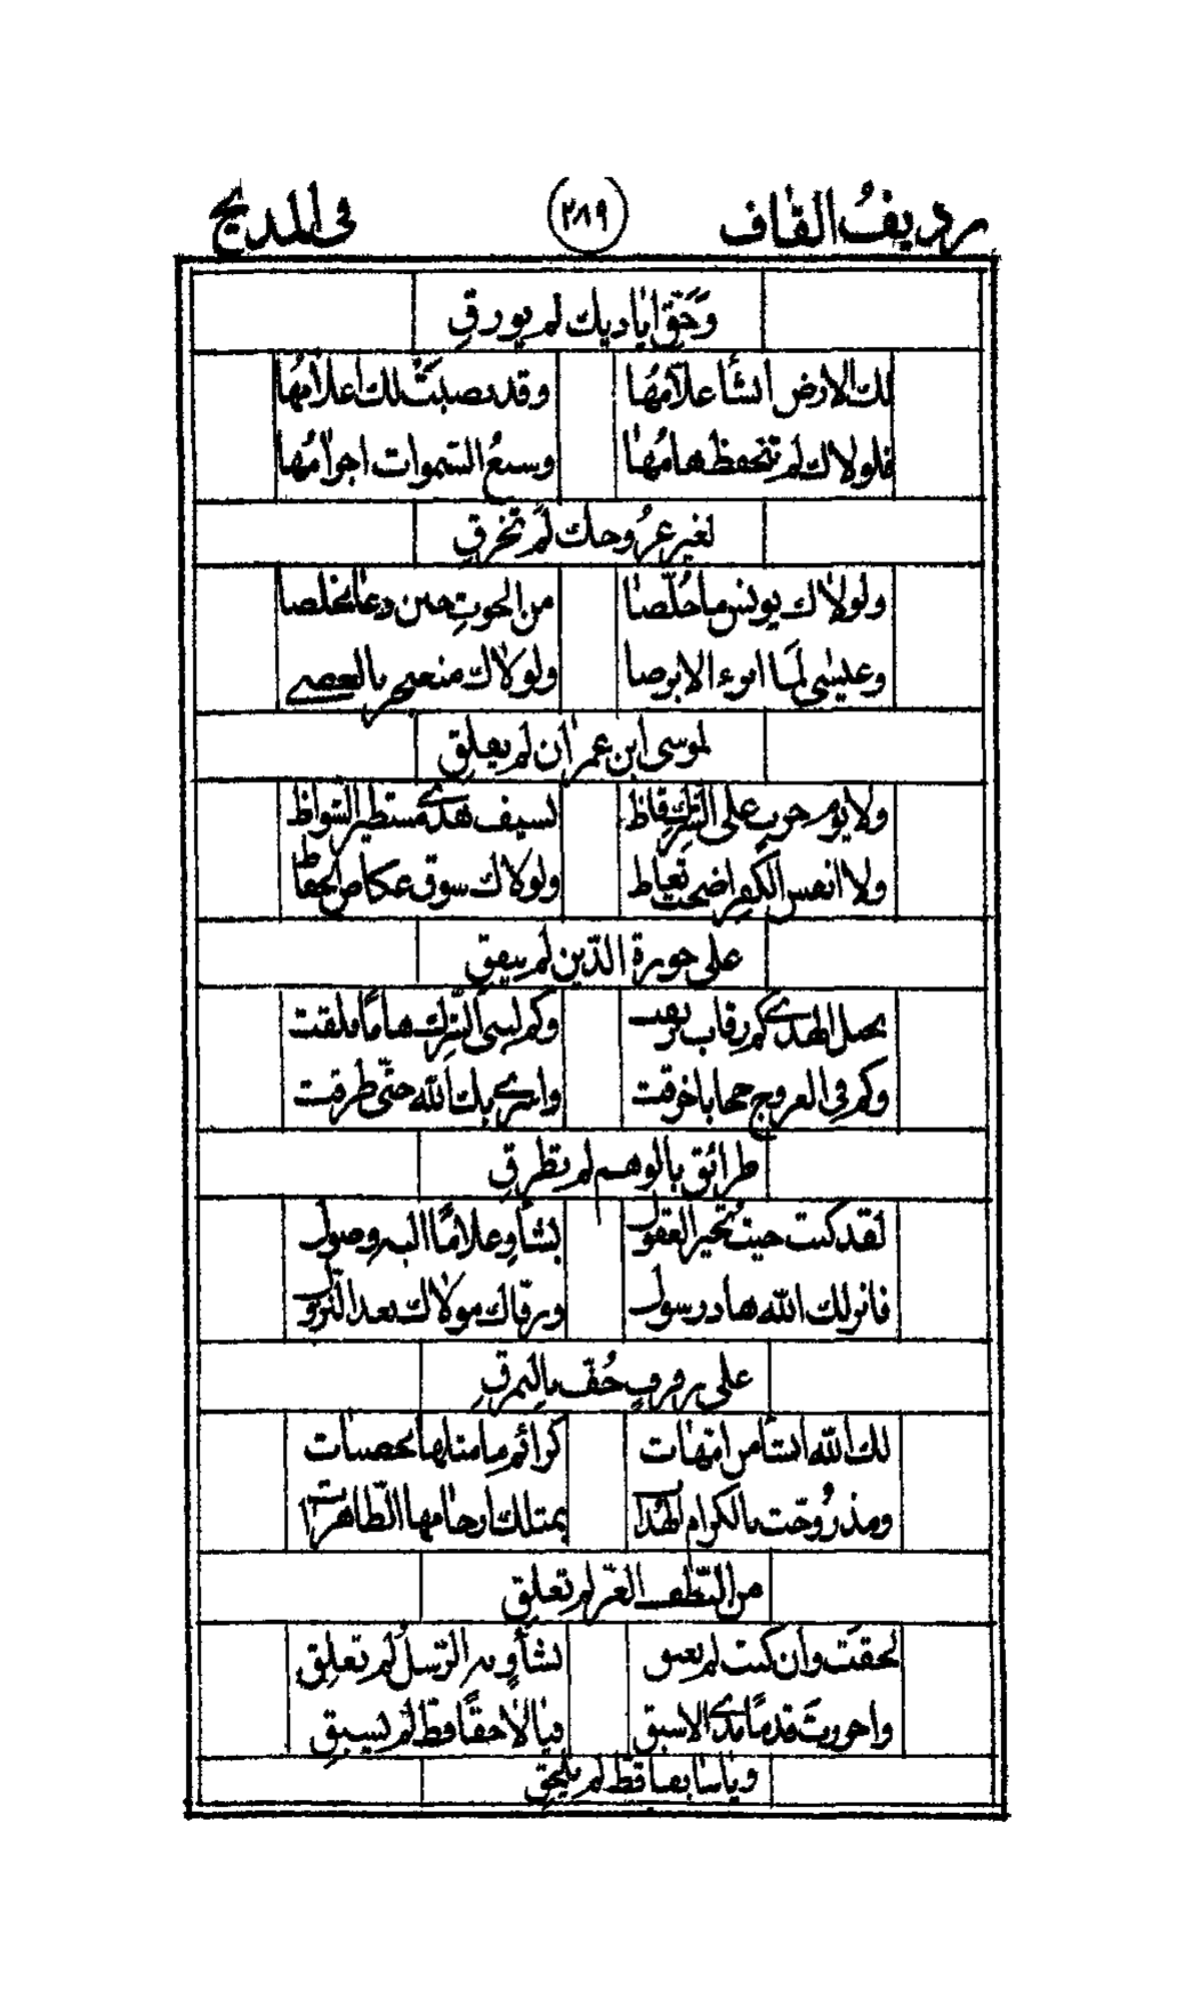 رديفُ القاف ٢٨٩ فى المديح
وَحَقِّ اياديك لم يورقِ
لك الارض انشأ علّامُها وقد نصبَتْ لك اعلامُها
فلولاك لم تنحفظ هامُها وسبعُ السّموات اجرامُها
لغير عرُوجك لم تخرقِ
ولولاك يونس ما خُلّصا من الحوتِ حين دعا مخلصا
وعيسى لمَا ابرء الابرصا ولولاك بالعصى
لموسى ابن عمران لم يعلقِ
ولا يوم حربٍ على الشّرك قاظ بسيف هدى مستطير الشواظ
ولا انفس الكفر اضحت ولولاك سوق عكاظ
على حوزة الدّين لم
الهدى كم رقاب وكم الشّرك هامًا فلقت
وكم فى العروج حجابا خرقت واسرى بك الله حتّى طرقت
طرائق بالوهم لم تطرقِ
لقد كنت حيث تُحَيّر العقول بشأوٍ علامًا اليه وصول
فانزلك الله هاد رسول ورقّاك مولاك بعد النّزول
على رفرفٍ حُفّ بالنمرقِ
لك الله انشأ من امّهات كرائم ما مثلها محصنات
ومذ زُوّجت بالكرام الهداة بمثلك ارحامها الطّاهرات
من النّطف الغرّ لم تعلقِ
لحقتَ وان كنت لم تعنق بشأوٍ به الرّسلُ لم تعلقِ
واحرزتَ قدمًا مدى الاسبق فيا لاحقًا قطّ لم يسبقِ
ويا سابقا قطّ لم يلحقِ